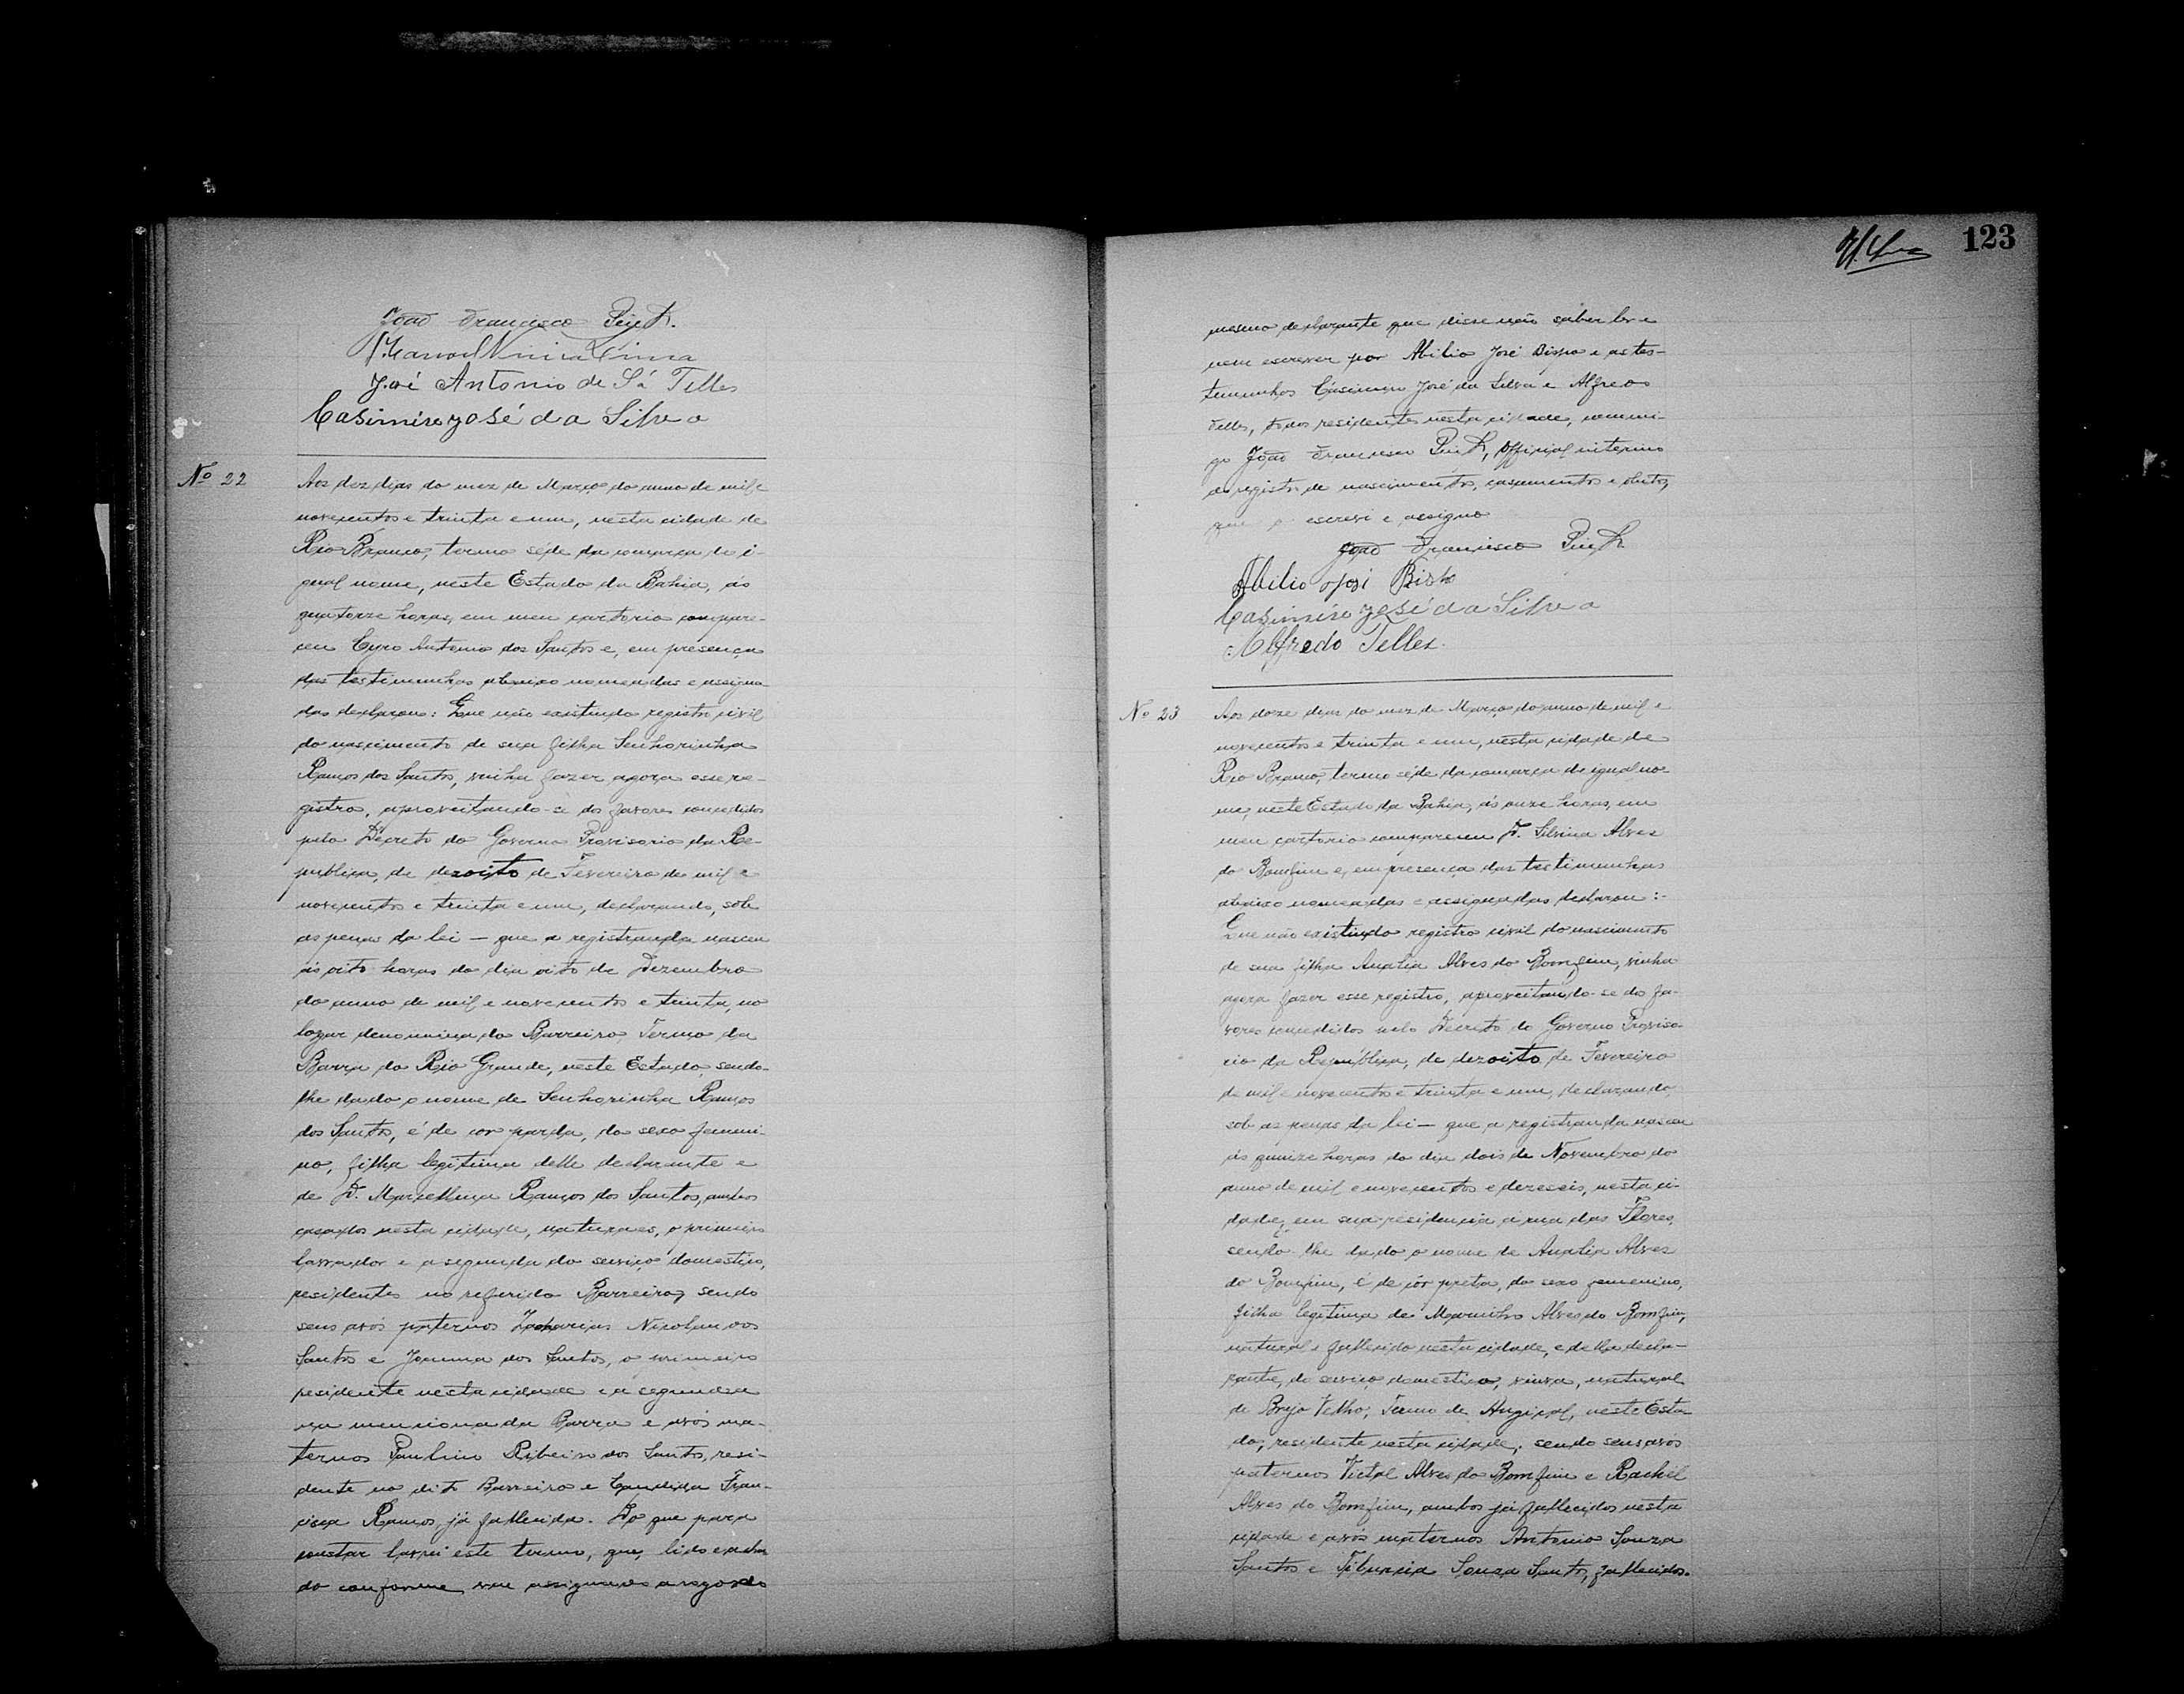 João Francisco
Manoel Lima
José Antonio de Sá Telles
Casimiro José da Silva
Nº 22
Aos dez dias do mez de Março do anno de mil e
novecentos e trinta e um, nesta cidade de
Rio Branco, termo séde da comarca de i-
gual nome, neste Estado da Bahia, ás
quatorze horas, em meu cartorio compare-
ceu Cyro Antonio dos Santos e, em presença
das testimunhas abaixo nomeadas e assigna-
das declarou: Que não existindo registro civil
do nascimento de sua filha Senhorinha
Ramos dos Santos, vinha fazer agora esse re-
gistro, aproveitando-se dos favores concedidos
pelo Decreto do Governo Provisorio da Re-
publica, de dezoito de Fevereiro de mil e
novecentos e trinta e um, declarando, sob
as penas da lei — que a registranda nasceu
ás oito horas do dia oito de Dezembro
do anno de mil e novecentos e trinta, no
logar denominado Barreiro, Termo da
Barra do Rio Grande, neste Estado, sendo-
lhe dado o nome de Senhorinha Ramos
dos Santos, é de cor parda, do sexo femini-
no, filha legitima delle declarante e
de D. Marcellina Ramos dos Santos, ambos
casados nesta cidade, naturaes, o primeiro
lavrador e a segunda do serviço domestico,
residentes no referido Barreiro, sendo
seus avós paternos Zacharias Nicolau dos
Santos e Joanna dos Santos, o primeiro
residente nesta cidade e a segunda
na mencionada Barra e avós ma-
ternos Paulino Ribeiro dos Santos, resi-
dente no dito Barreiro e Candida Fran-
cisca Ramos, já fallecida. Do que para
constar lavrei este termo, que, lido e acha-
do conforme, vae assignado a rogo do
123
mesmo declarante que disse não saber ler e
nem escrever por Abilio José Bispo e as tes-
temunhas Casimiro José da Silva e Alfredo
Telles, todos residentes nesta cidade, commi-
go João Francisco, Official interino
do registro de nascimentos, casamentos e obitos,
que o escrevi e assigno
João Francisco
Abilio José Bispo
Casimiro José da Silva
Alfredo Telles.
Nº 23
Aos doze dias do mez de Março do anno de mil e
novecentos e trinta e um, nesta cidade de
Rio Branco, termo séde da comarca de igual no-
me, neste Estado da Bahia, ás onze horas, em
meu cartorio compareceu D. Silvina Alves
do Bomfim e, em presença das testimunhas
abaixo nomeadas e assignadas declarou:-
Que não existindo registro civil do nascimento
de sua filha Analia Alves do Bomfim, vinha
agora fazer esse registro, aproveitando-se dos fa-
vores concedidos pelo Decreto do Governo Proviso-
rio da Republica, de dezoito de Fevereiro
de mil e novecentos e trinta e um, declarando,
sob as penas da lei — que a registranda nasceu
ás quinze horas do dia dois de Novembro do
anno de mil e novecentos e dezeseis, nesta ci-
dade, em sua residencia á rua das Flores,
sendo-lhe dado o nome de Analia Alves
do Bomfim, é de côr preta, do sexo femenino,
filha legitima de Alves do Bomfim,
natural e fallecido nesta cidade, e della decla-
rante, do serviço domestico, viuva, natural
de Brejo Velho, Termo de Angical, neste Esta-
do, residente nesta cidade, sendo seus avós
paternos Victal Alves do Bomfim e Rachel
Alves do Bomfim, ambos já fallecidos nesta
cidade e avós maternos Antonio Souza
Santos e Tiburcia Souza Santos, fallecidos.